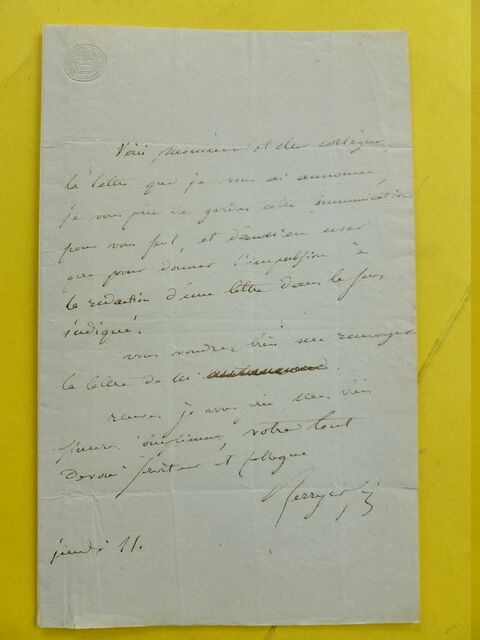 Voici monsieur et cher collègue
la lettre que je vous ai annoncée,
je vous prie de garder cette communication
pour vous seul, et d'en user
que pour donner l'impulsion à
la rédaction d'une lettre dans le sens
indiqué.
vous voudrez bien me renvoyer
la lettre de
recevez je vous prie mes bien
sincères complimens, votre tout
dévoué serviteur et collègue
Berryer
jeudi 11.